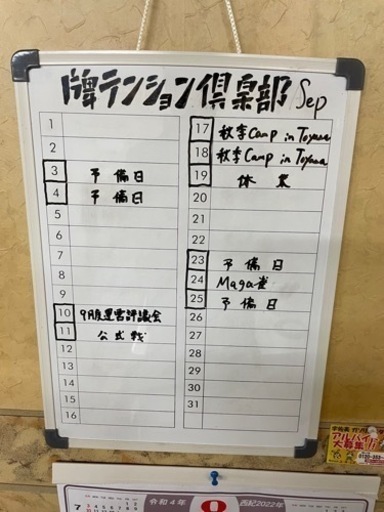 牌テンション倶楽部 Sep
1
2
3 予備日
4 予備日
5
6
7
8
9
10 9月度運営評議会
11 公式戦
12
13
14
15
16
17 秋季Camp in Toyama
18 秋季Camp in Toyama
19 休業
20
21
22
23 予備日
24 Maga雀
25 予備日
26
27
28
29
30
31
アルバイト
大募集!!
7
令和4年
西紀2022年